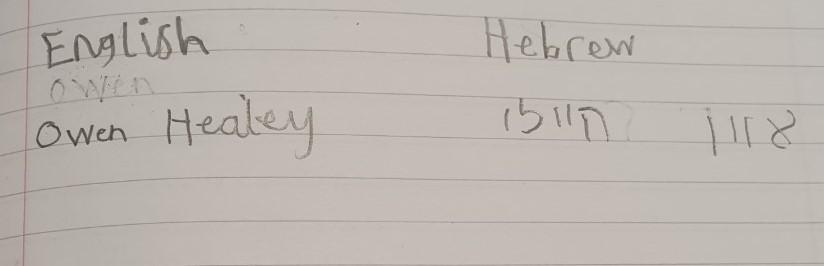 English Hebrew
Owen
Owen Healey אוון היילי